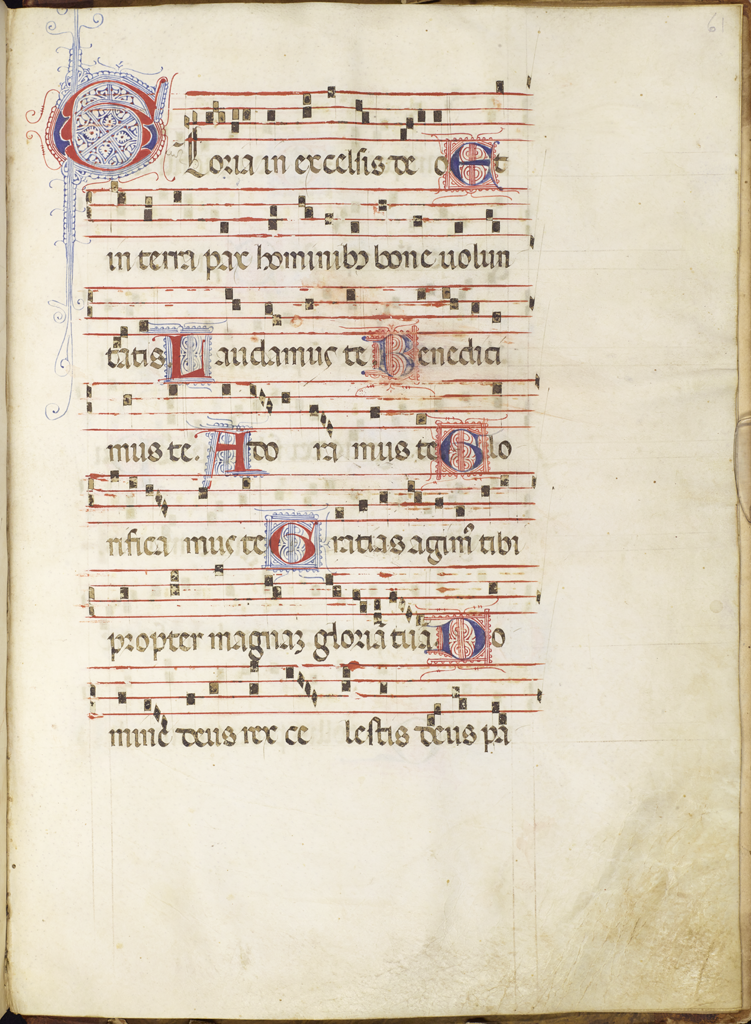 61
Gloria in excelsis de o Et
in terra pax hominibꝫ bone uolun
tatis Laudamus te Benedici
mus te. Ado ra mus te Glo
rifica mus te Gratias agim᷒ tibi
propter magnaꝫ gloriā tuā Do
mine deus rex ce lestis deus pa